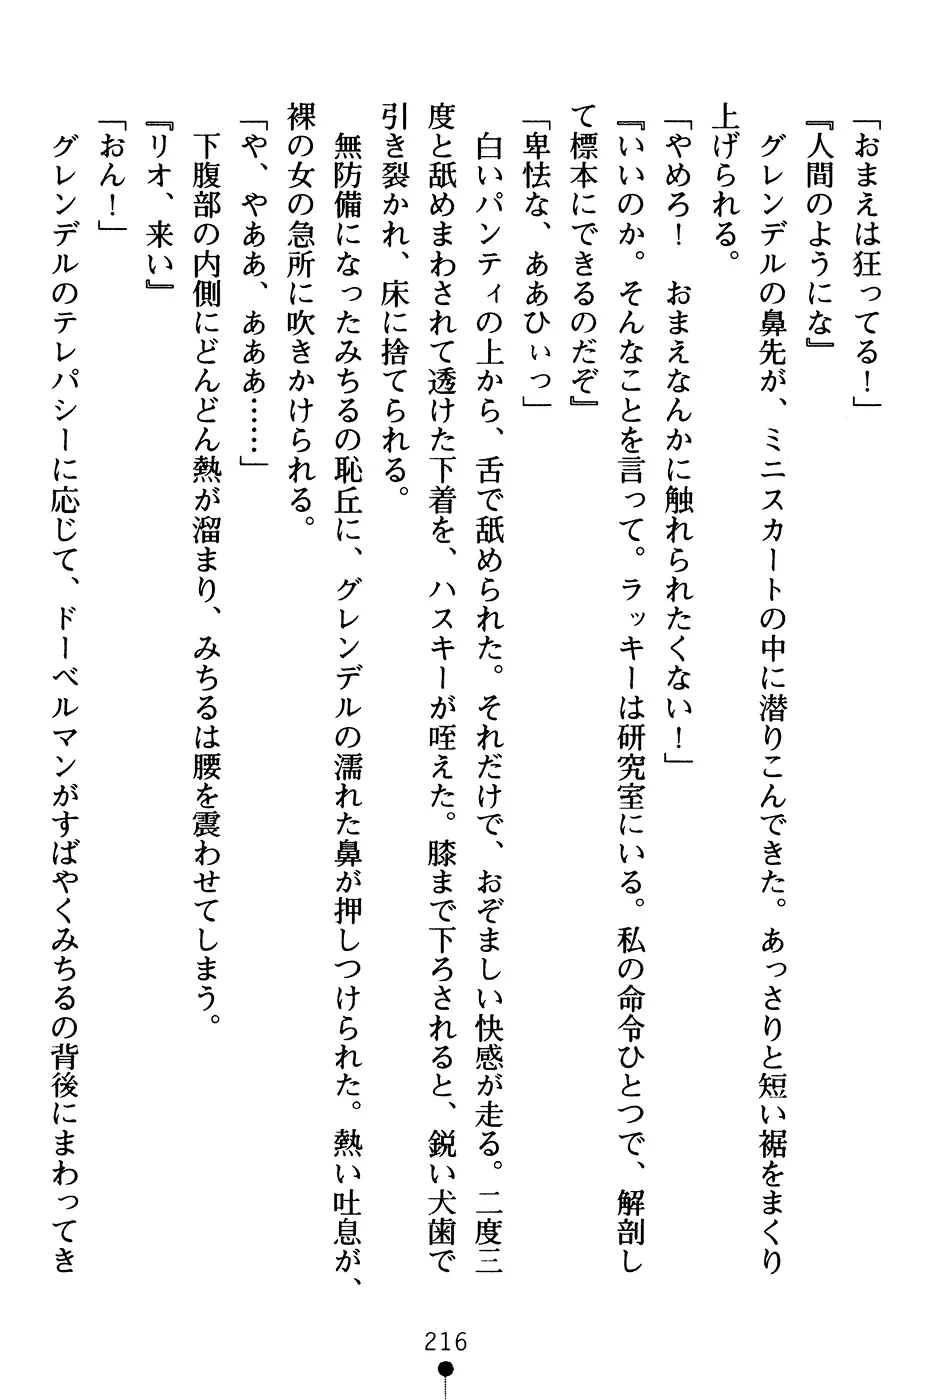 「おまえは狂ってる！」
『人間のようにな』
　グレンデルの鼻先が、ミニスカートの中に潜りこんできた。あっさりと短い裾をまくり
上げられる。
「やめろ！　おまえなんかに触れられたくない！」
『いいのか。そんなことを言って。ラッキーは研究室にいる。私の命令ひとつで、解剖し
て標本にできるのだぞ』
「卑怯な、ああひぃっ」
　白いパンティの上から、舌で舐められた。それだけで、おぞましい快感が走る。二度三
度と舐めまわされて透けた下着を、ハスキーが咥えた。膝まで下ろされると、鋭い犬歯で
引き裂かれ、床に捨てられる。
　無防備になったみちるの恥丘に、グレンデルの濡れた鼻が押しつけられた。熱い吐息が、
裸の女の急所に吹きかけられる。
「や、やああ、あああ……」
　下腹部の内側にどんどん熱が溜まり、みちるは腰を震わせてしまう。
『リオ、来い』
「おん！」
　グレンデルのテレパシーに応じて、ドーベルマンがすばやくみちるの背後にまわってき
216